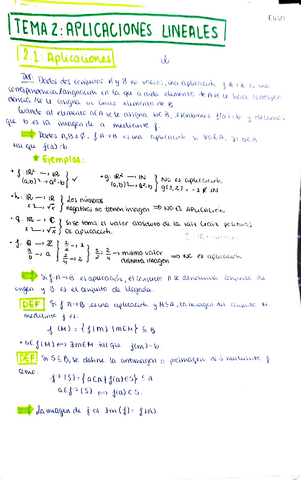 TEMA 2: APLICACIONES LINEALES
2.1. Aplicaciones
DEF. Dados dos conjuntos A y B no vacíos, una aplicación f: A→B es una
correspondencia en la que a cada elemento de A se le hace
se le asigna un único elemento de B.
Cuando al elemento a∈A se le asigna b∈B, f(a)=b y decimos
que b es la imagen de a mediante f.
⇒ Dados A,B≠∅, f: A→B es una aplicación si ∀a∈A, ∃! b∈B
tal que f(a)=b
★ Ejemplos:
• f: ℝ² → ℝ
(a,b) → a²-b ✓
• g: ℝ² → ℕ
(a,b) → a²-b
NO es aplicación
• h: ℝ → ℝ
x → √x
Los números
negativos no tienen imagen ⇒ NO ES APLICACIÓN
x → √x
Si se toma el valor absoluto de la raíz
es aplicación.
→ mismo valor
distinta imagen ⇒ NO es aplicación
⇒ Si f: A→B es aplicación, el conjunto A se denomina conjunto de
origen y B es el conjunto de llegada.
DEF Si f: A→B es una aplicación y M⊆A, la imagen del conjunto
mediante f es:
f(M) = {f(m) | m∈M} ⊆ B
• b∈f(M) ⟺ ∃m∈M tal que f(m)=b
DEF Si S⊆B, se define la antiimagen o preimagen de S mediante f
como:
f⁻¹(S) = {a∈A | f(a)∈S} ⊆ A
a∈f⁻¹(S) ⟺ f(a)∈S.
⇒ La imagen de f es Im(f) = f(A)